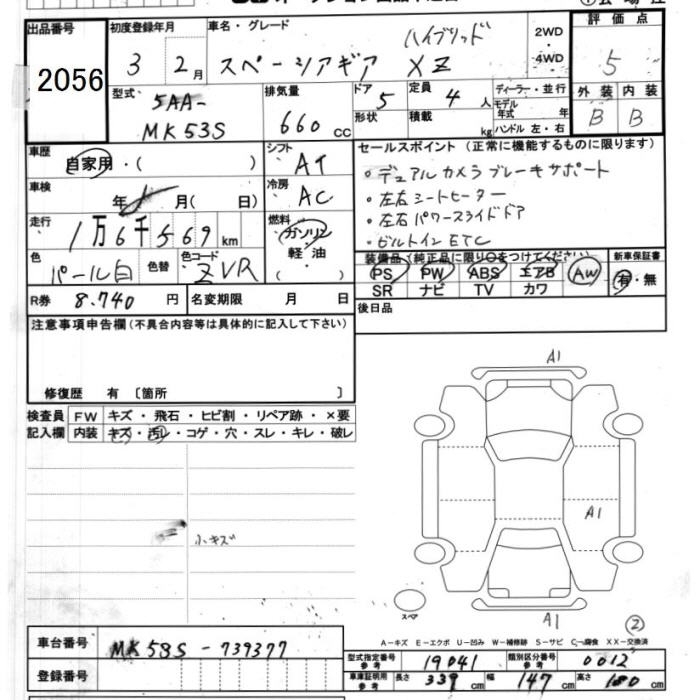 出品番号 初度登録年月 車名・グレード 評価点
2056
3 2月 スペーシアギア ハイブリッド XZ 2WD ・ 4WD 5
型式 5AA- MK53S
排気量 660 cc
ドア 5 定員 4 人 ディーラー・並行
形状 積載 kg モデル年式 年 ハンドル 左・右
外装 内装
B B
車歴 自家用・( )
シフト AT
セールスポイント (正常に機能するものに限ります)
・デュアルカメラブレーキサポート
・左右シートヒーター
・左右パワースライドドア
・ビルトインETC
車検 年 月( 日)
冷房 AC
走行 1万6千569km
燃料 ガソリン 軽・油 ( )
色 パール白 色替 色コード ZVR
装備品 (純正品に限り○をつけてください) 新車保証書
PS PW ABS エアB AW 有・無
SR ナビ TV カワ
R券 8.740 円 名変期限 月 日
後日品
注意事項申告欄 (不具合内容等は具体的に記入して下さい)
修復歴 有 〔箇所 〕
検査員 FW キズ・飛石・ヒビ割・リペア跡・×要
記入欄 内装 キズ・汚レ・コゲ・穴・スレ・キレ・破レ
A1
A1
小キズ
スペア
A1
2
A-キズ E-エクボ U-凹み W-補修跡 S-サビ C-腐食 XX-交換済
車台番号 MK53S - 739377
型式指定番号 参考 19041 類別区分番号 参考 0012
登録番号
車庫証明用 参考 長さ 339 cm 幅 147 cm 高さ 180 cm